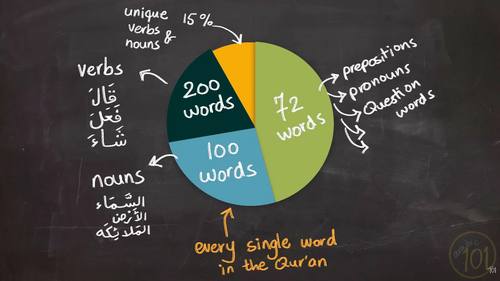 unique
verbs &
nouns
15%
verbs
قَالَ
فَعَلَ
شَاءَ
200
words
72
words
prepositions
pronouns
Question
words
100
words
nouns
السَّمَاء
الأَرْض
المَلَائِكَة
every single word
in the Qur'an
arabic
101